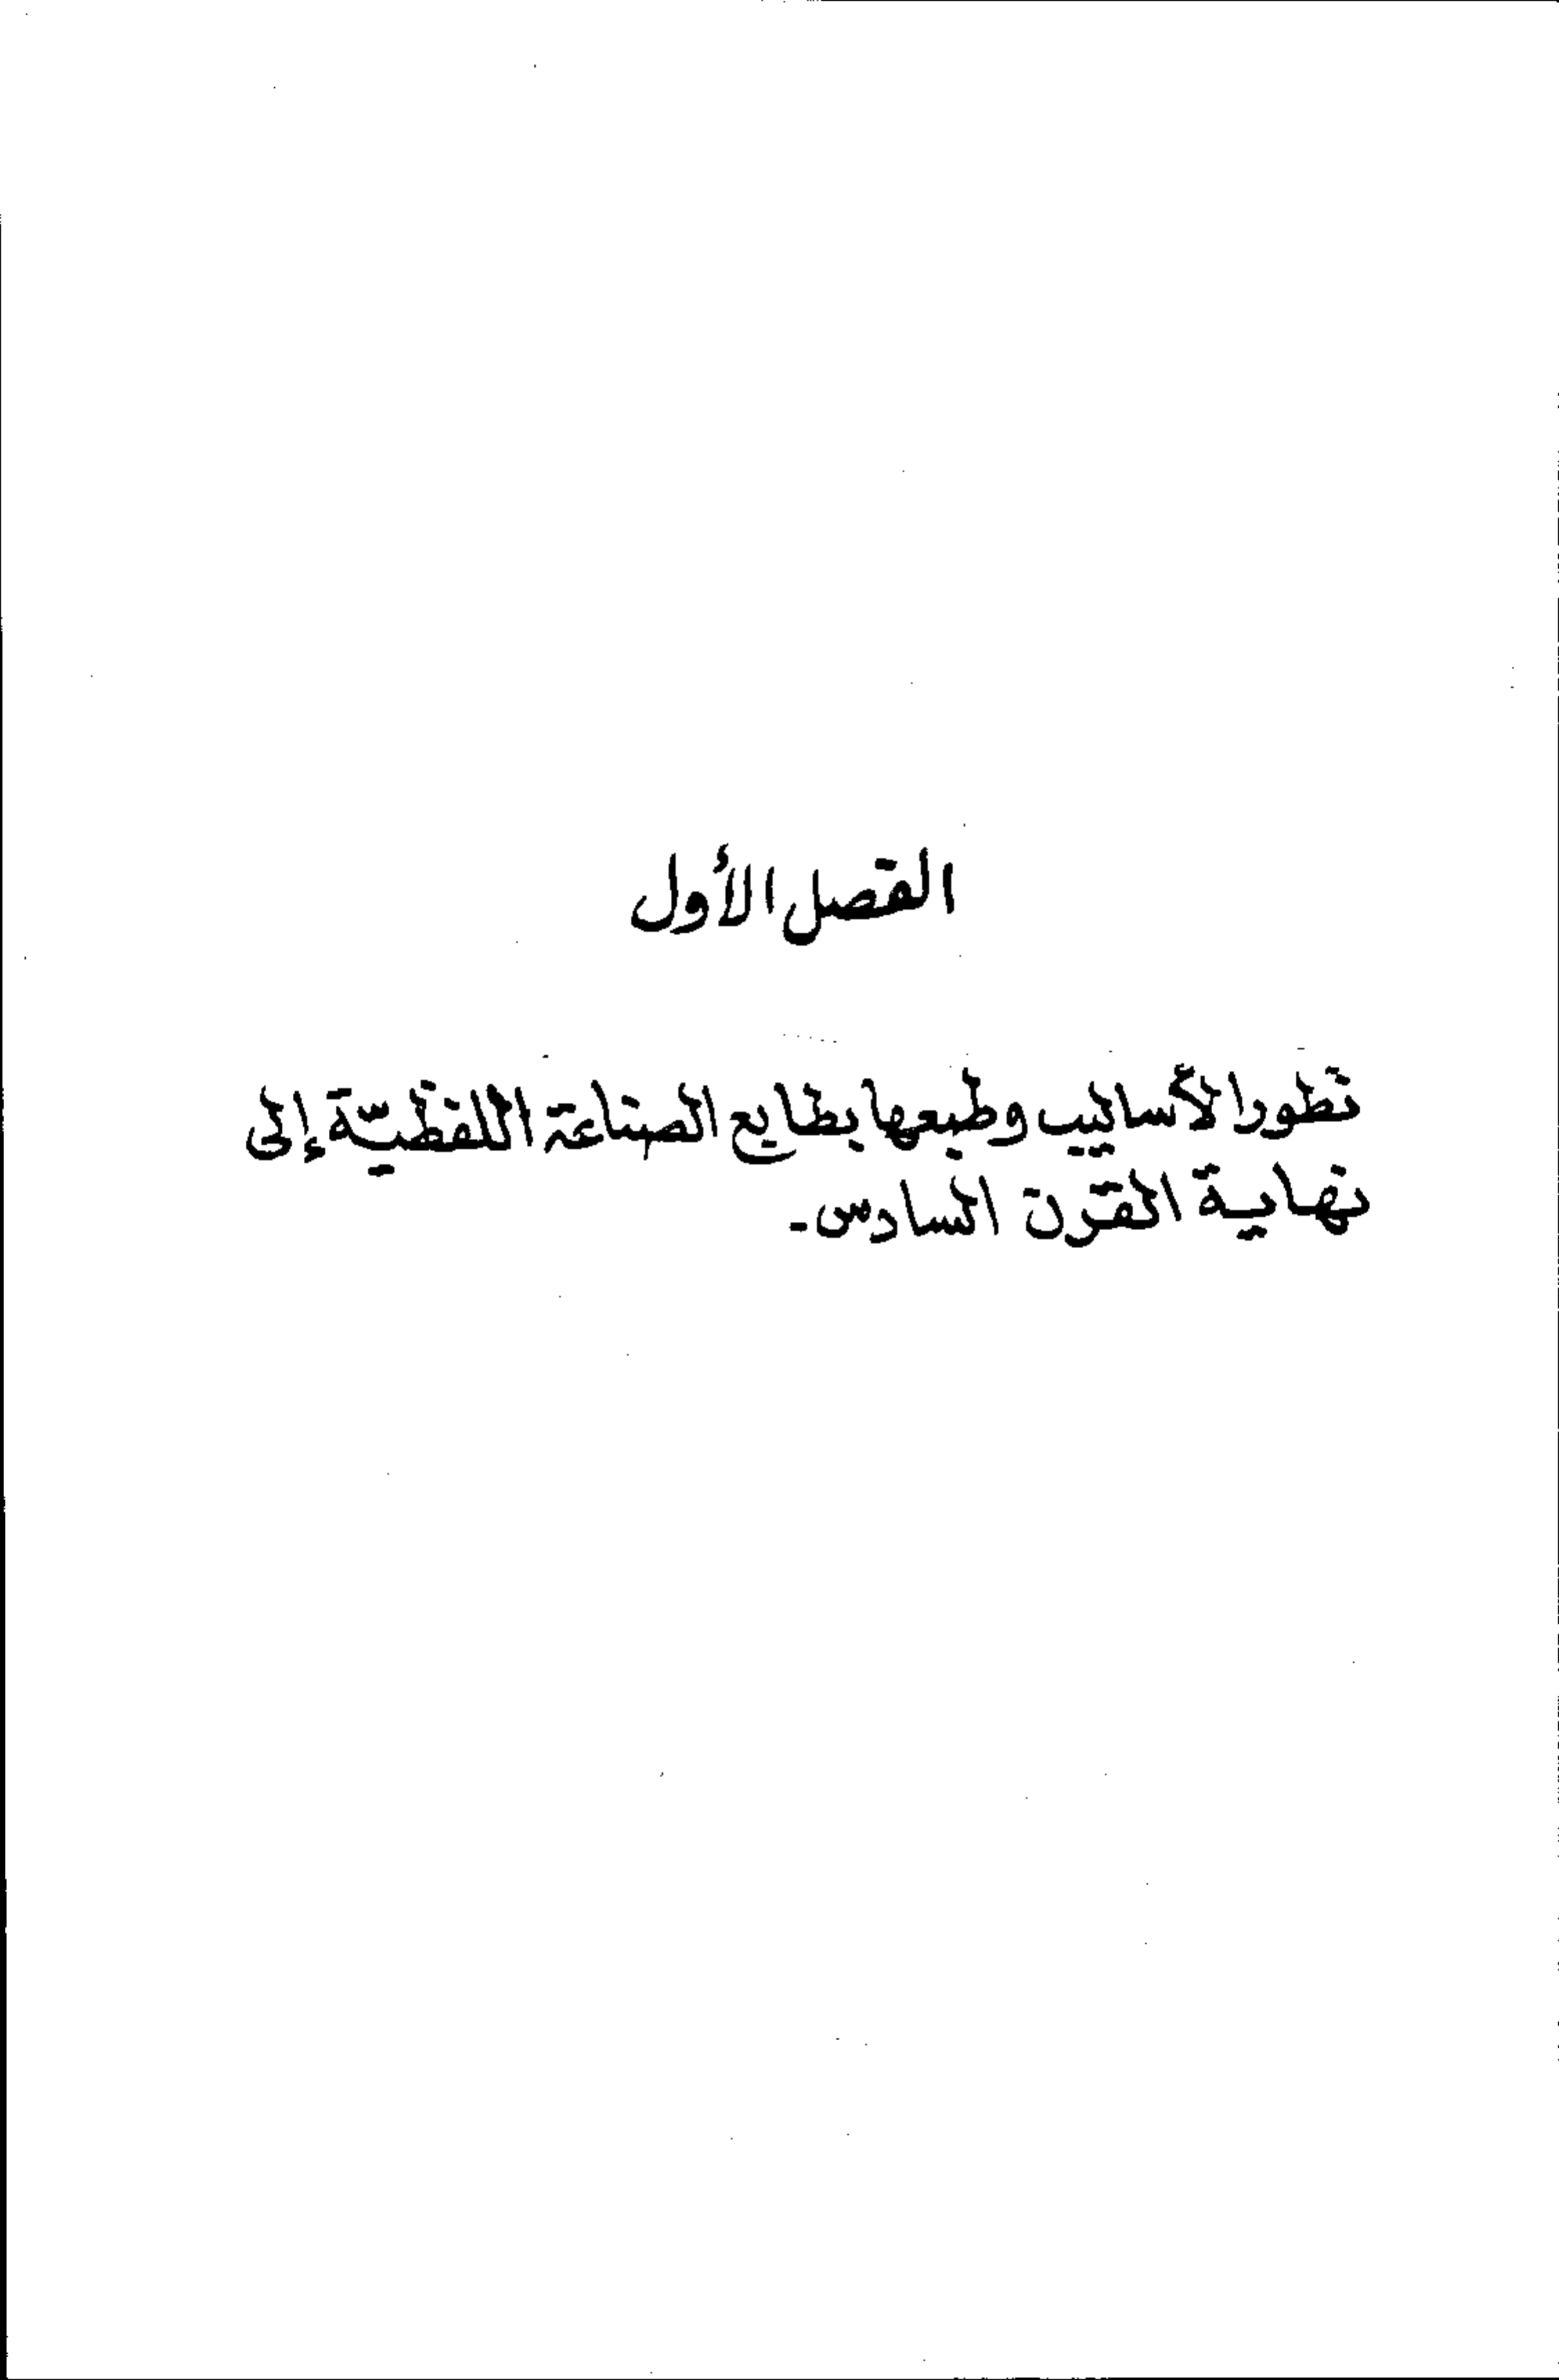 الفصل الأول
تطور الأساليب وطبعها بطابع الصناعة اللفظية إلى
نهاية القرن السادس -